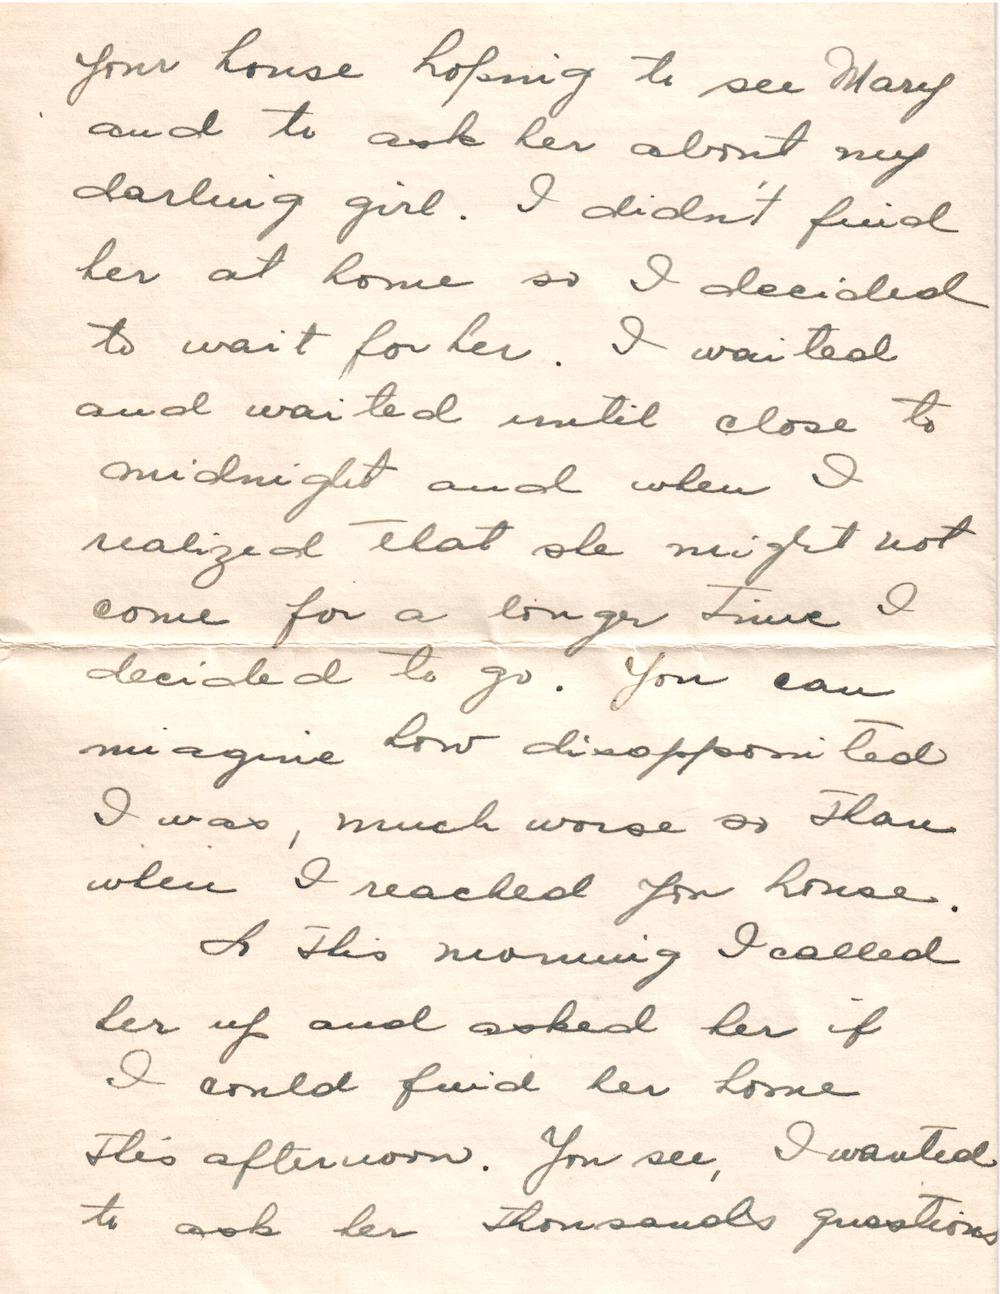 your house hoping to see Mary
and to ask her about my
darling girl. I didn't find
her at home so I decided
to wait for her. I waited
and waited until close to
midnight and when I
realized that she might not
come for a longer time I
decided to go. You can
imagine how disappointed
I was, much worse so than
when I reached you house.
So this morning I called
her up and asked her if
I could find her home
this afternoon. You see, I wanted
to ask her thousands questions